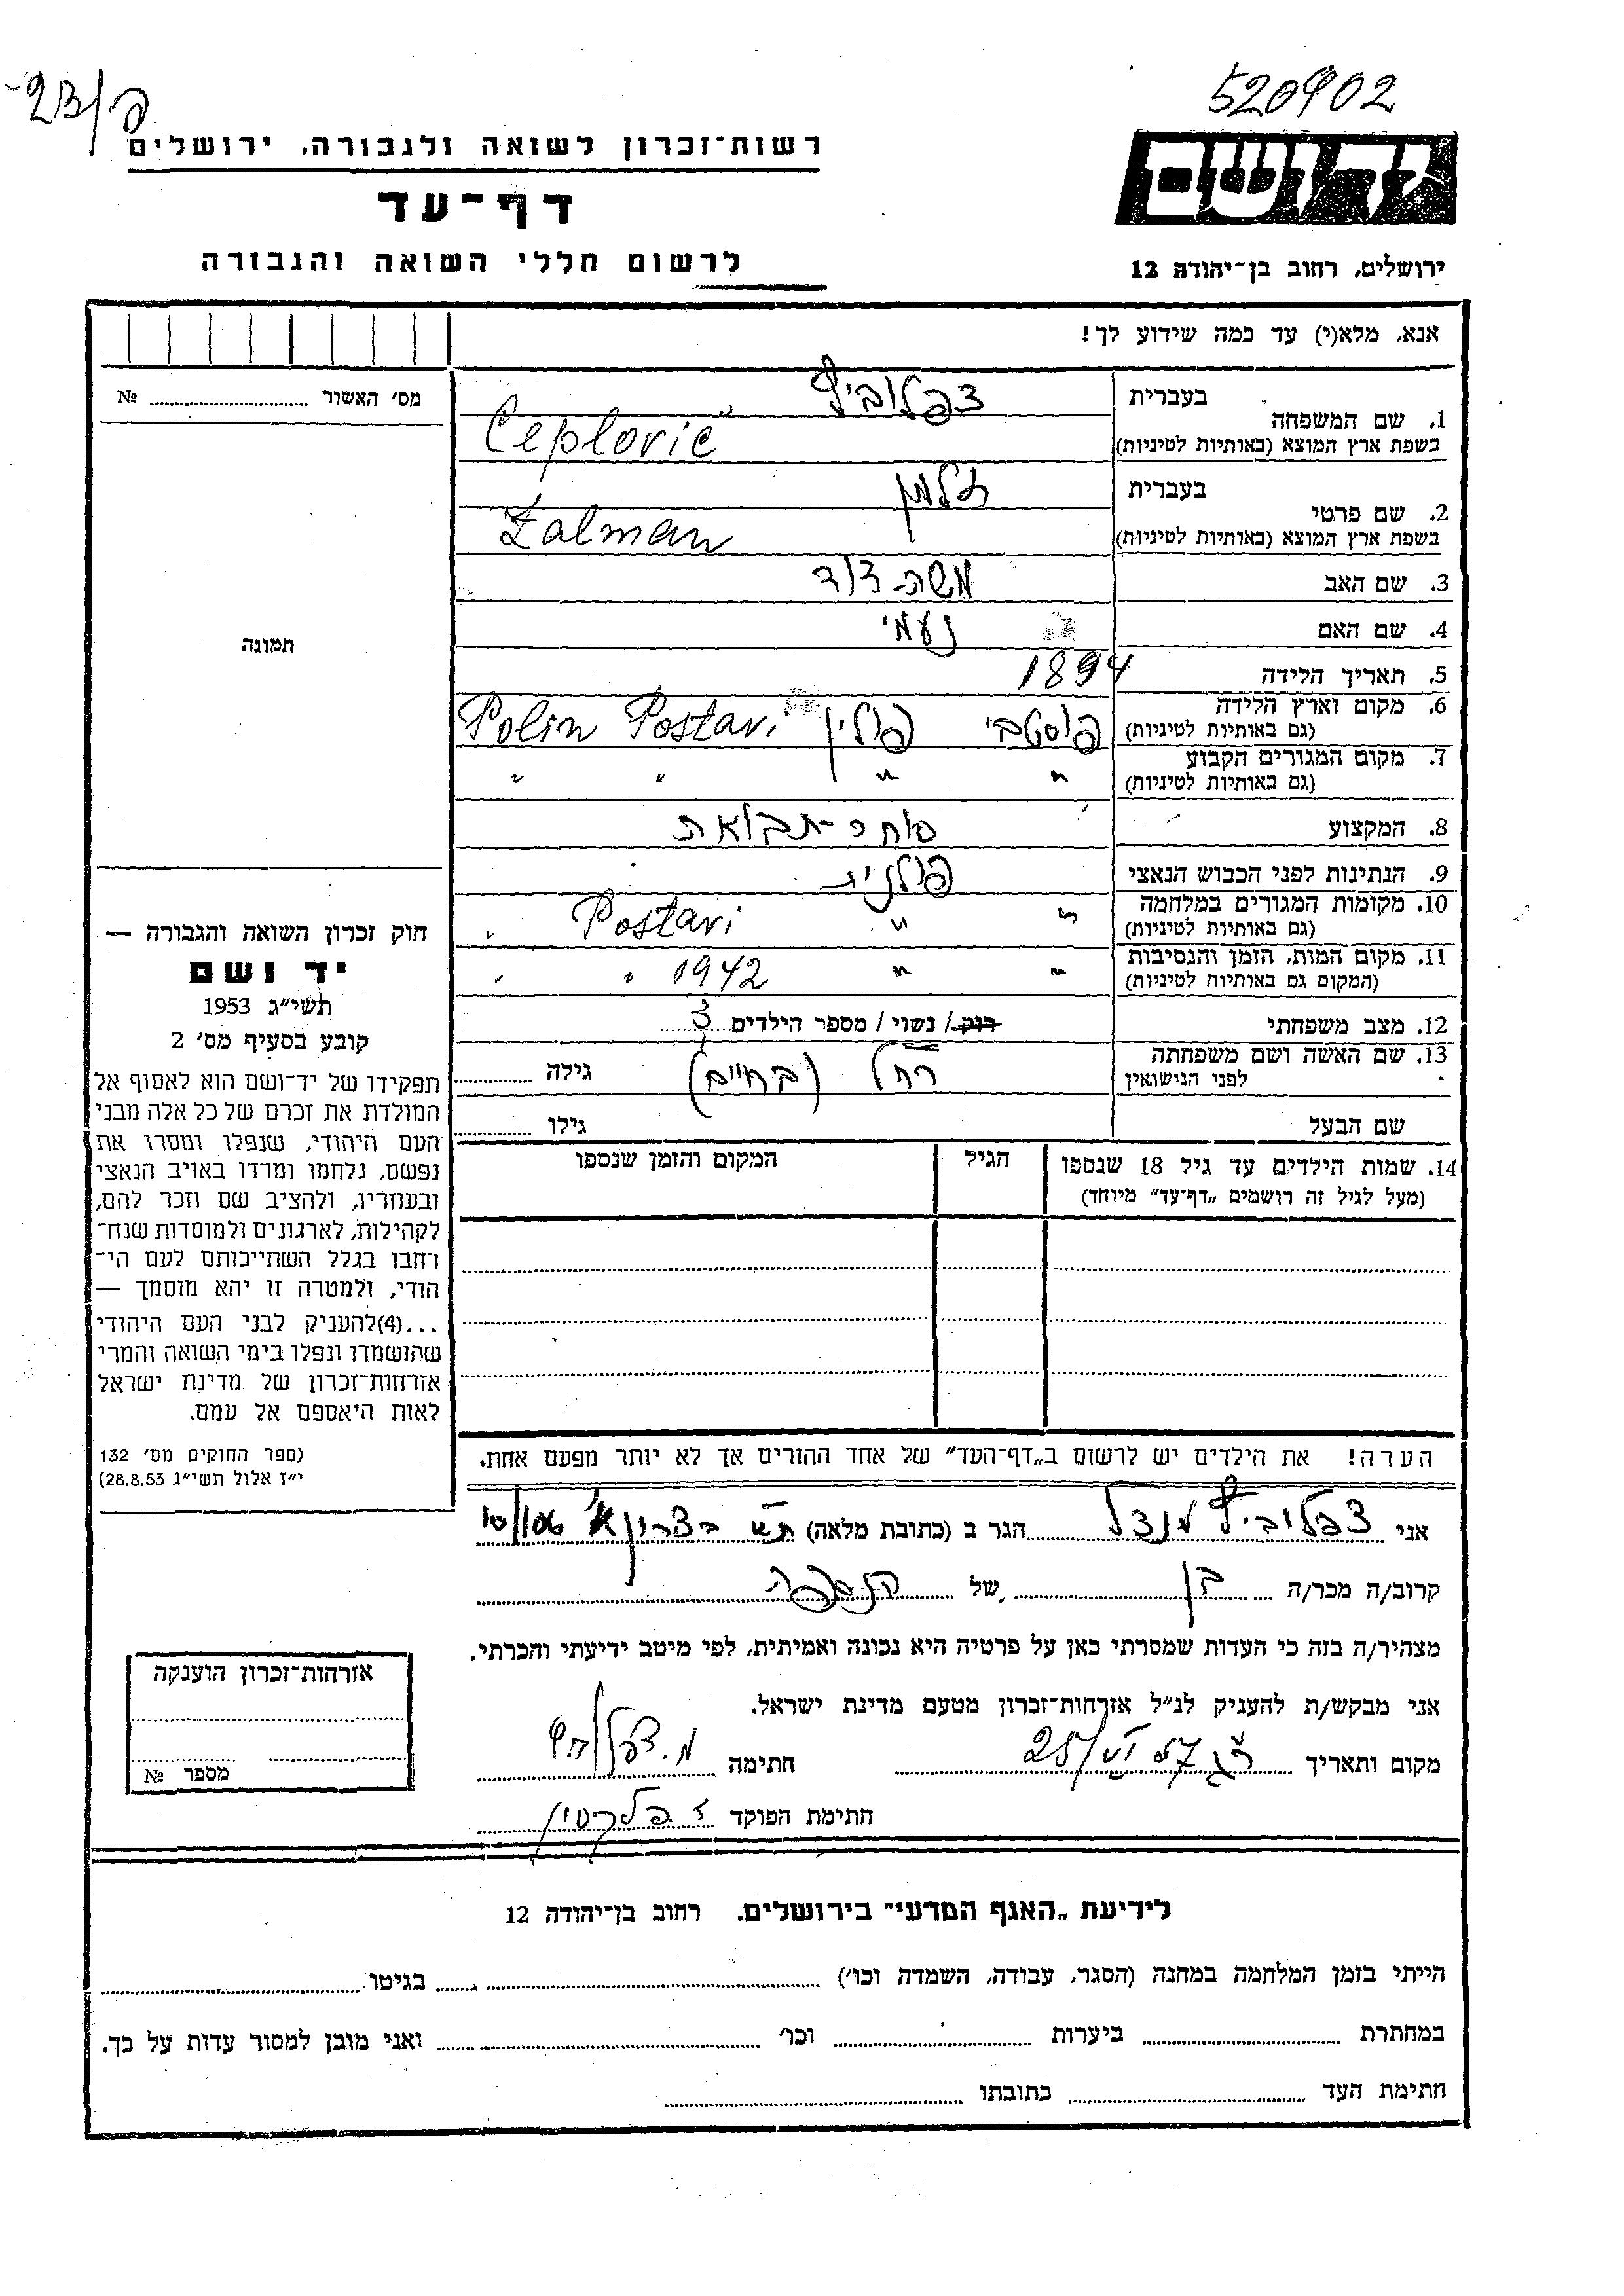 520902
23/פ
רשות־זכרון לשואה ולגבורה, ירושלים
יד ושם
דף־עד
לרשום חללי השואה והגבורה
ירושלים, רחוב בן־יהודה 12
אנא, מלא(י) עד כמה שידוע לך!
מס' האשור № 
1. שם המשפחה בעברית צפלוביץ
בשפת ארץ המוצא (באותיות לטיניות) Ceplovic
2. שם פרטי בעברית זלמן
בשפת ארץ המוצא (באותיות לטיניות) Zalman
3. שם האב משה-דוד
4. שם האם נעמי
תמונה
5. תאריך הלידה 1894
6. מקום וארץ הלידה (גם באותיות לטיניות) פוסטבי פולין Polin Postavi
7. מקום המגורים הקבוע (גם באותיות לטיניות) " " " "
8. המקצוע סוחר-תבואות
9. הנתינות לפני הכבוש הנאצי פולנית
10. מקומות המגורים במלחמה (גם באותיות לטיניות) " " Postavi "
11. מקום המות, הזמן והנסיבות (המקום גם באותיות לטיניות) " " 1942 " "
12. מצב משפחתי רוק / נשוי / מספר הילדים 3
13. שם האשה ושם משפחתה לפני הנישואין רחל (בחיים) גילה
שם הבעל גילו
14. שמות הילדים עד גיל 18 שנספו הגיל המקום והזמן שנספו
(מעל לגיל זה רושמים „דף־עד” מיוחד)
חוק זכרון השואה והגבורה —
יד ושם
תשי״ג 1953
קובע בסעיף מס' 2
תפקידו של יד־ושם הוא לאסוף אל
המולדת את זכרם של כל אלה מבני
העם היהודי, שנפלו ומסרו את
נפשם, נלחמו ומרדו באויב הנאצי
ובעוזריו, ולהציב שם וזכר להם,
לקהילות, לארגונים ולמוסדות שנח־
רחבו בגלל השתייכותם לעם הי־
הודי, ולמטרה זו יהא מוסמך —
...(4)להעניק לבני העם היהודי
שהושמדו ונפלו בימי השואה והמרי
אזרחות־זכרון של מדינת ישראל
לאות היאספם אל עמם.
(ספר החוקים מס' 132
י״ז אלול תשי״ג 28.8.53)
הערה! את הילדים יש לרשום ב„דף־העד” של אחד ההורים אך לא יותר מפעם אחת.
אני צפלוביץ מנדל הגר ב (כתובת מלאה) ת״א ביצרון א' 10/106
קרוב/ה מכר/ה בן של הנספה
מצהיר/ה בזה כי העדות שמסרתי כאן על פרטיה היא נכונה ואמיתית, לפי מיטב ידיעתי והכרתי.
אני מבקש/ת להעניק לנ״ל אזרחות־זכרון מטעם מדינת ישראל.
מקום ותאריך חתימה
חתימת הפוקד
אזרחות־זכרון הוענקה
מספר №
לידיעת „האגף המדעי” בירושלים. רחוב בן־יהודה 12
הייתי בזמן המלחמה במחנה (הסגר, עבודה, השמדה וכו') בגיטו
במחתרת ביערות וכו' ואני מוכן למסור עדות על כך.
חתימת העד כתובתו